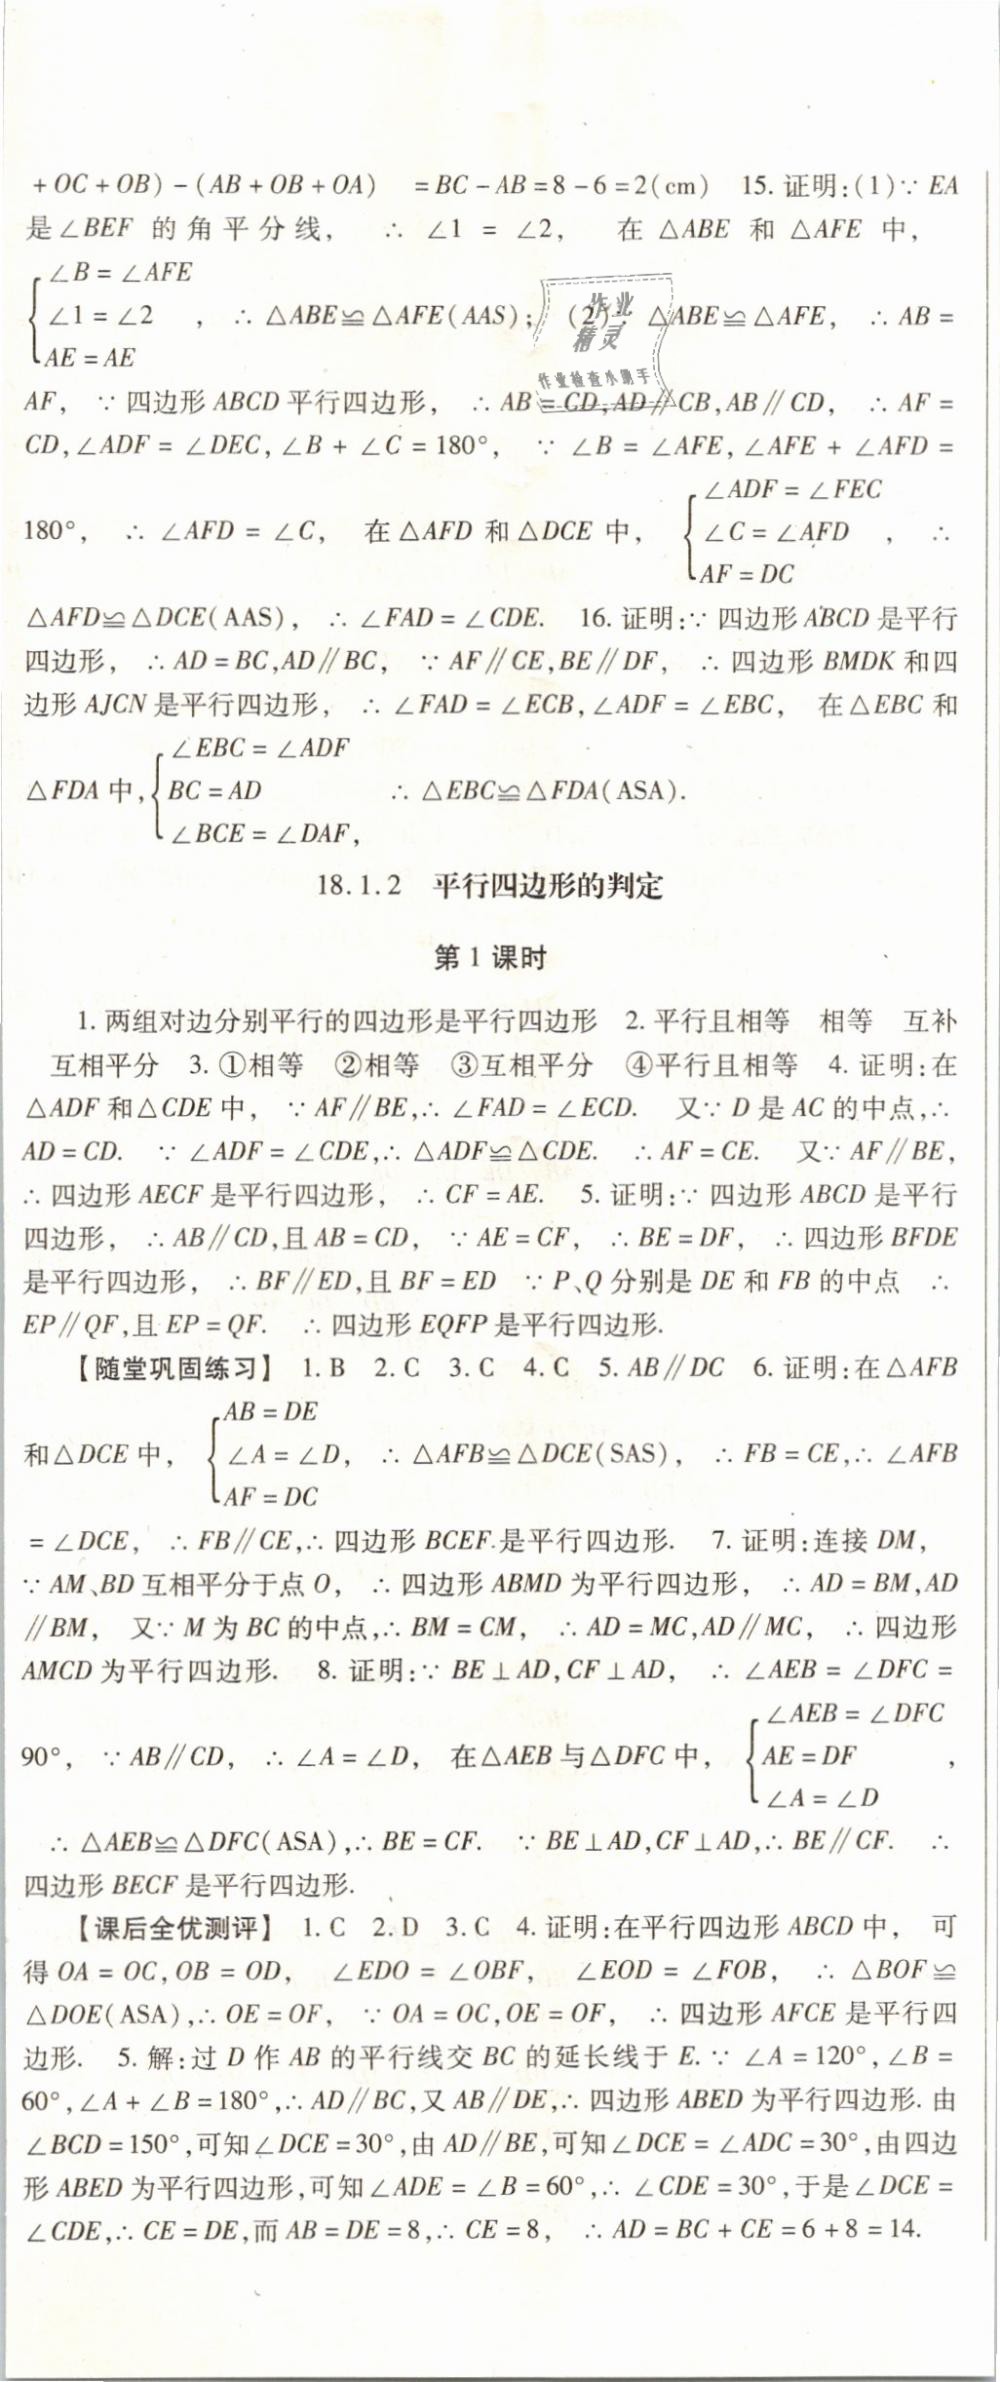 +OC+OB)-(AB+OB+OA) =BC-AB=8-6=2(cm) 15.证明:(1)∵EA
是∠BEF 的角平分线, ∴ ∠1 = ∠2, 在△ABE 和△AFE 中,
∠B=∠AFE
∠1=∠2 , ∴ △ABE≌△AFE(AAS); (2)∵△ABE≌△AFE, ∴AB=
AE=AE
AF, ∵四边形ABCD平行四边形, ∴AB=CD,AD∥CB,AB∥CD, ∴AF=
CD,∠ADF=∠DEC,∠B+∠C=180°, ∵∠B=∠AFE,∠AFE+∠AFD=
∠ADF=∠FEC
180°, ∴∠AFD=∠C, 在△AFD和△DCE中, ∠C=∠AFD , ∴
AF=DC
△AFD≌△DCE(AAS), ∴∠FAD=∠CDE. 16.证明:∵四边形ABCD是平行
四边形, ∴AD=BC,AD∥BC, ∵AF∥CE,BE∥DF, ∴四边形BMDK和四
边形AJCN是平行四边形, ∴∠FAD=∠ECB,∠ADF=∠EBC, 在△EBC和
∠EBC=∠ADF
△FDA中, BC=AD ∴△EBC≌△FDA(ASA).
∠BCE=∠DAF,
18.1.2 平行四边形的判定
第1课时
1.两组对边分别平行的四边形是平行四边形 2.平行且相等 相等 互补
互相平分 3.①相等 ②相等 ③互相平分 ④平行且相等 4.证明:在
△ADF和△CDE中, ∵AF∥BE,∴∠FAD=∠ECD. 又∵D是AC的中点,∴
AD=CD. ∵∠ADF=∠CDE,∴△ADF≌△CDE. ∴AF=CE. 又∵AF∥BE,
∴四边形AECF是平行四边形, ∴CF=AE. 5.证明:∵四边形ABCD是平行
四边形, ∴AB∥CD,且AB=CD, ∵AE=CF, ∴BE=DF, ∴四边形BFDE
是平行四边形, ∴BF∥ED,且BF=ED ∵P、Q分别是DE和FB的中点 ∴
EP∥QF,且EP=QF. ∴四边形EQFP是平行四边形.
【随堂巩固练习】 1.B 2.C 3.C 4.C 5.AB∥DC 6.证明:在△AFB
AB=DE
和△DCE中, ∠A=∠D, ∴△AFB≌△DCE(SAS), ∴FB=CE,∴∠AFB
AF=DC
=∠DCE, ∴FB∥CE,∴四边形BCEF是平行四边形. 7.证明:连接DM,
∵AM、BD互相平分于点O, ∴四边形ABMD为平行四边形, ∴AD=BM,AD
∥BM, 又∵M为BC的中点,∴BM=CM, ∴AD=MC,AD∥MC, ∴四边形
AMCD为平行四边形. 8.证明:∵BE⊥AD,CF⊥AD, ∴∠AEB=∠DFC=
∠AEB=∠DFC
90°, ∵AB∥CD, ∴∠A=∠D, 在△AEB与△DFC中, AE=DF ,
∠A=∠D
∴△AEB≌△DFC(ASA),∴BE=CF. ∵BE⊥AD,CF⊥AD,∴BE∥CF. ∴
四边形BECF是平行四边形.
【课后全优测评】 1.C 2.D 3.C 4.证明:在平行四边形ABCD中, 可
得OA=OC,OB=OD, ∠EDO=∠OBF, ∠EOD=∠FOB, ∴△BOF≌
△DOE(ASA),∴OE=OF, ∵OA=OC,OE=OF, ∴四边形AFCE是平行四
边形. 5.解:过D作AB的平行线交BC的延长线于E.∵∠A=120°,∠B=
60°,∠A+∠B=180°,∴AD∥BC,又AB∥DE,∴四边形ABED为平行四边形.由
∠BCD=150°,可知∠DCE=30°,由AD∥BE,可知∠DCE=∠ADC=30°,由四边
形ABED为平行四边形,可知∠ADE=∠B=60°,∴∠CDE=30°,于是∠DCE=
∠CDE,∴CE=DE,而AB=DE=8,∴CE=8, ∴AD=BC+CE=6+8=14.
作业
精灵
作业检查小助手